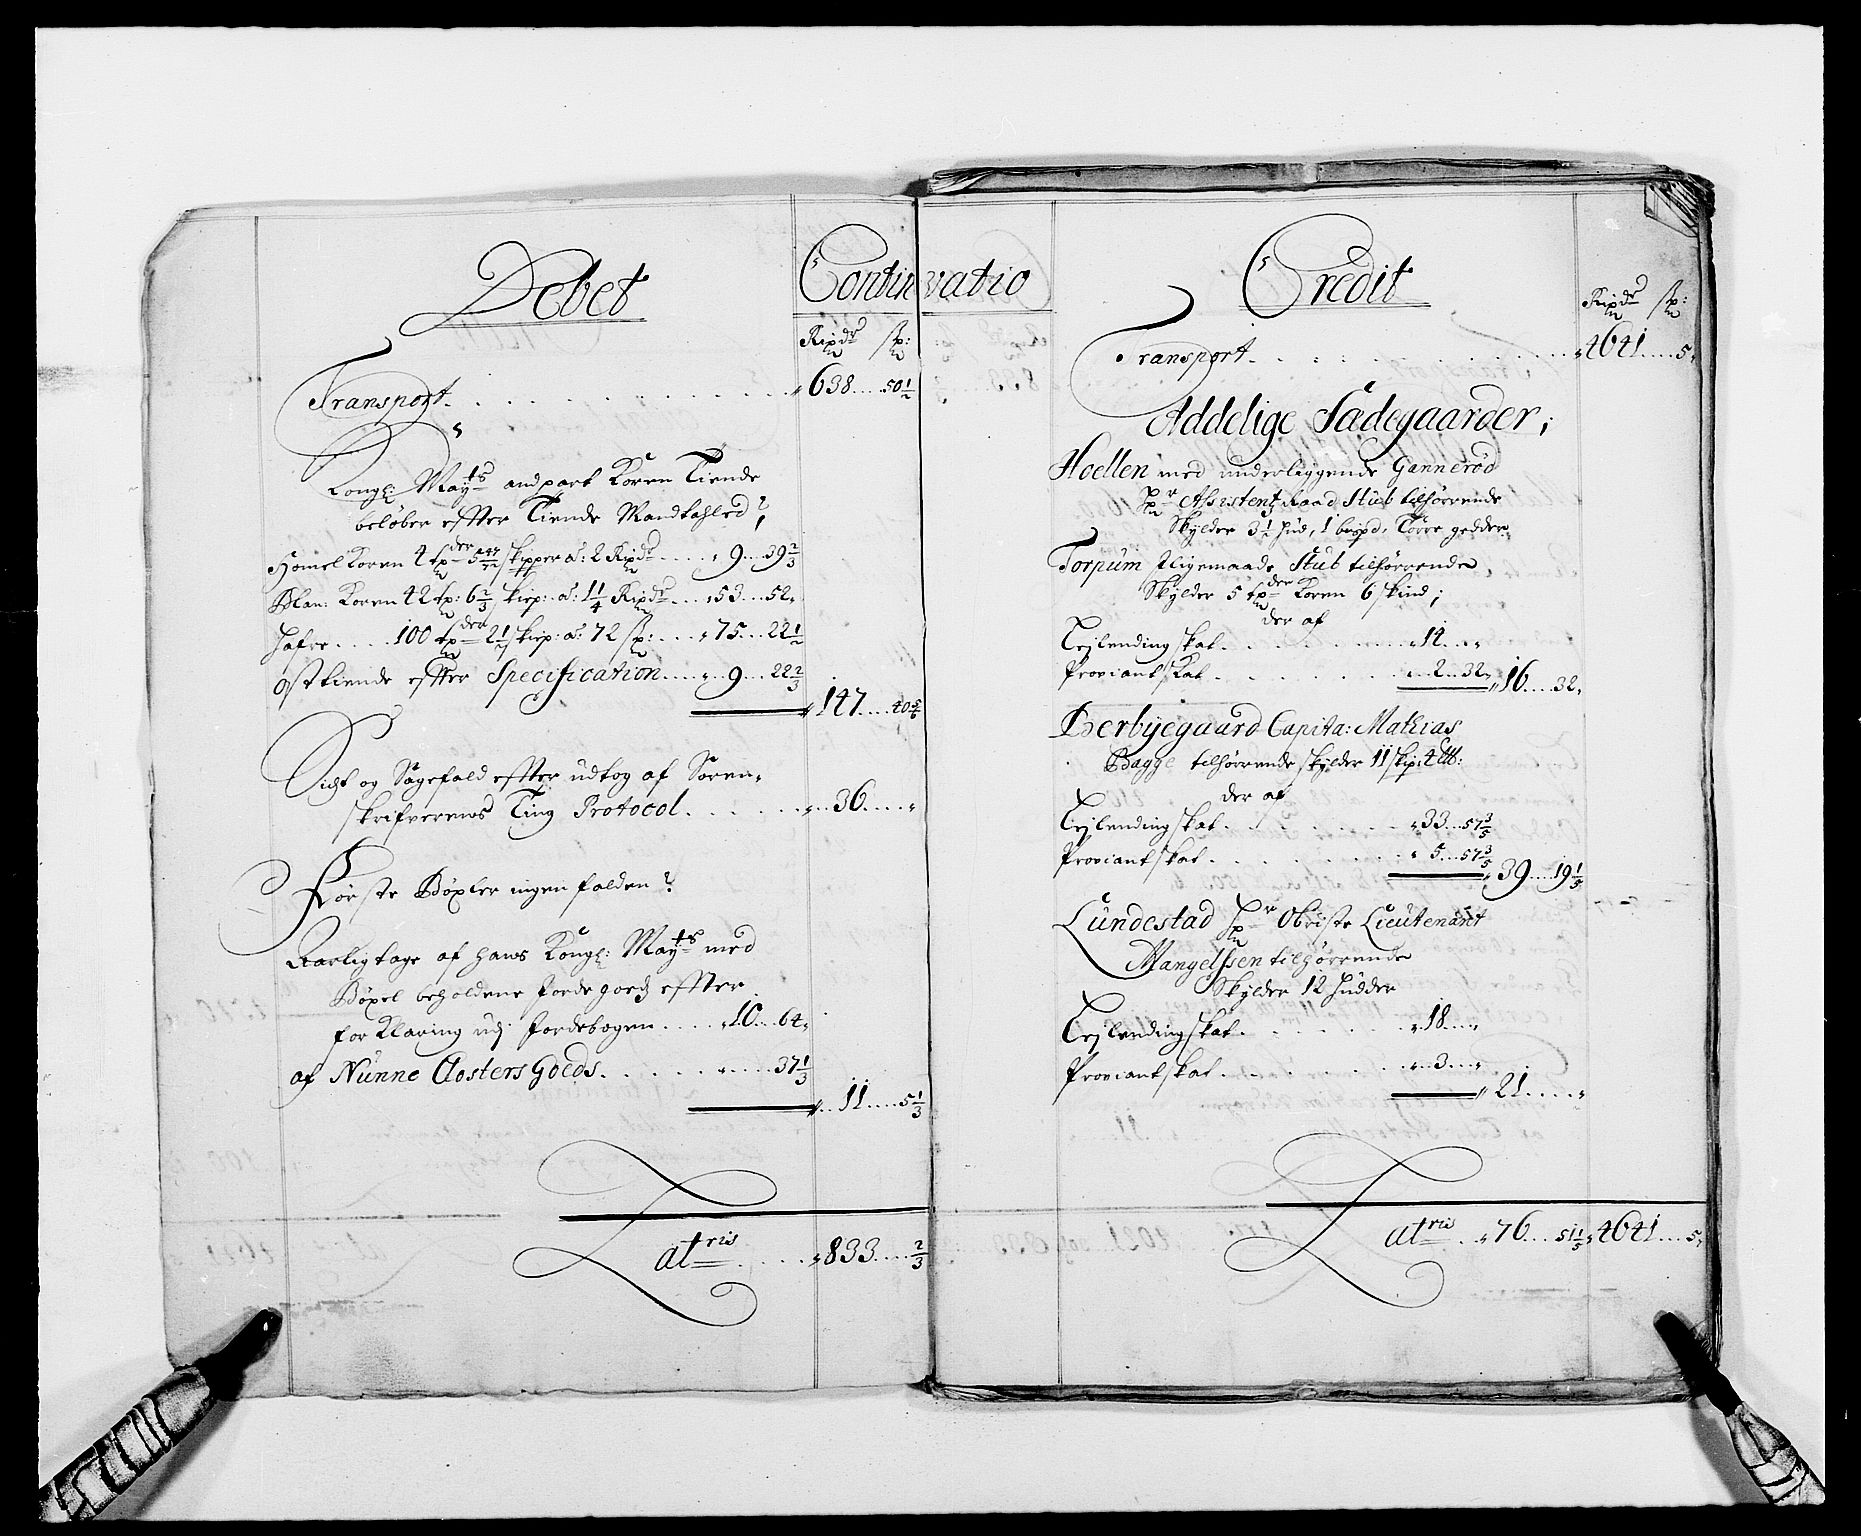 Debet
Continuatio
Rixdr sk:
Transport. . . . . 638 .... 50 1/2
Kongl: Mayts andpart Koren Tiende
beløber effter Tiende Mandtahled?
Homel Koren 4 tde 5 skipper a: 2 Rixdr .... 9 ... 39 2/3
Blan: Koren 42 t: 6 2/3 skiep: a: 1 1/4 Rixdr ... 53 ... 52
Hafre .... 100 tder 2 1/2 skiep: a: 72 sk: .... 75 ... 22 1/2
ostetiende effter Specification .... 9 ... 22 2/3
147 .... 40 5/6
Sicht og Sagefald effter udtog af Soren-
skrifverens Ting Protocol. . . . . 36 ....
Første Bøxler ingen falden?
Aarligtage af hans Kongl: Mayts med
Bøxel beholdene Jordegods effter
forklaring udj Jordebogen .... 10 ... 64
af Nunne Closters Goeds. . . . . 37 1/3
11 .... 5 1/3
atris . . . . 833 .... 2/3
Credit
Rixdr sk:
Transport. . . . . 4641 .... 5
Addelige Sædegaarder;
Hoellen med underliggende Gannerød
Hr Assistentz Raad Stub tilhørrende
Skylder 3 1/2 hud, 1 bispd. Tørre gedder,
Torpum Iligemaade Stub tilhørrende,
Skylder 5 tder Koren 6 skind;
der af
Lejlending skat. . . . . 14 ...
Proviant skat. . . . . 2 ... 32
16 .... 32
Herbyegaard Capita: Mathias
Bagge tilhørrende skylder 11 skip: 4 lb:
der af
Lejlending skat. . . . . 33 ... 57 3/5
Proviant skat. . . . . 5 ... 57 3/5
39 ... 19 1/5
Lundestad Hr Obriste Lieutenant
Mangelssen tilhørrende
Skylder 12 hudder
Lejlending skat. . . . . 18 ....
Proviant skat. . . . . 3 ...
21 ....
atris .. 76 ... 51 1/5 4641 ... 5